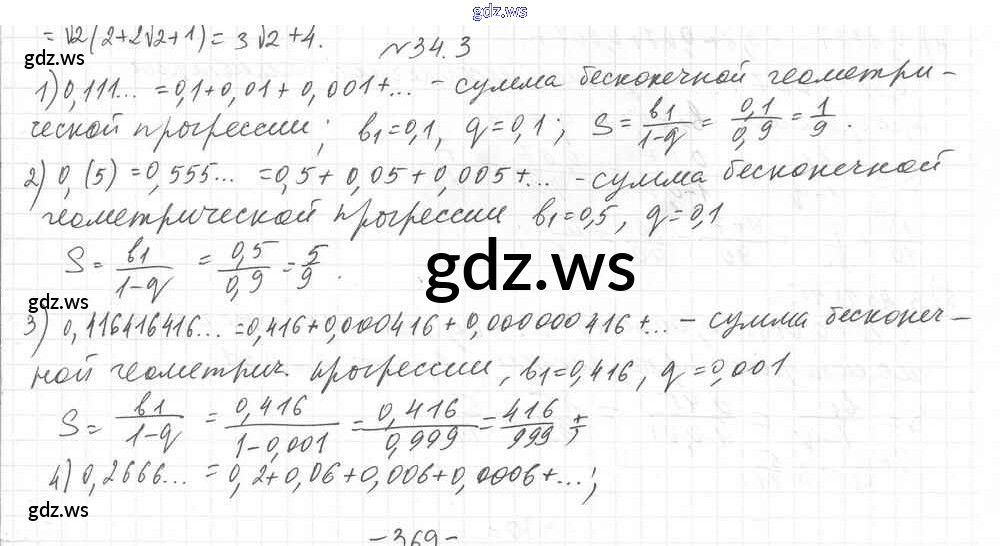 gdz.ws
= √2(2+2√2+1) = 3√2+4.
gdz.ws
№34.3
gdz.ws
1) 0,111... = 0,1+0,01+0,001+... - сумма бесконечной геометри-
ческой прогрессии; b1=0,1, q=0,1; S = b1/1-q = 0,1/0,9 = 1/9.
gdz.ws
2) 0,(5) = 0,555... = 0,5+0,05+0,005+... - сумма бесконечной
геометрической прогрессии b1=0,5, q=0,1
S = b1/1-q = 0,5/0,9 = 5/9.
gdz.ws
gdz.ws
3) 0,416416416... = 0,416+0,000416+0,000000416+... - сумма бесконеч-
ной геометрич. прогрессии, b1=0,416, q=0,001
gdz.ws
S = b1/1-q = 0,416/1-0,001 = 0,416/0,999 = 416/999
4) 0,2666... = 0,2+0,06+0,006+0,0006+...;
gdz.ws
-369-